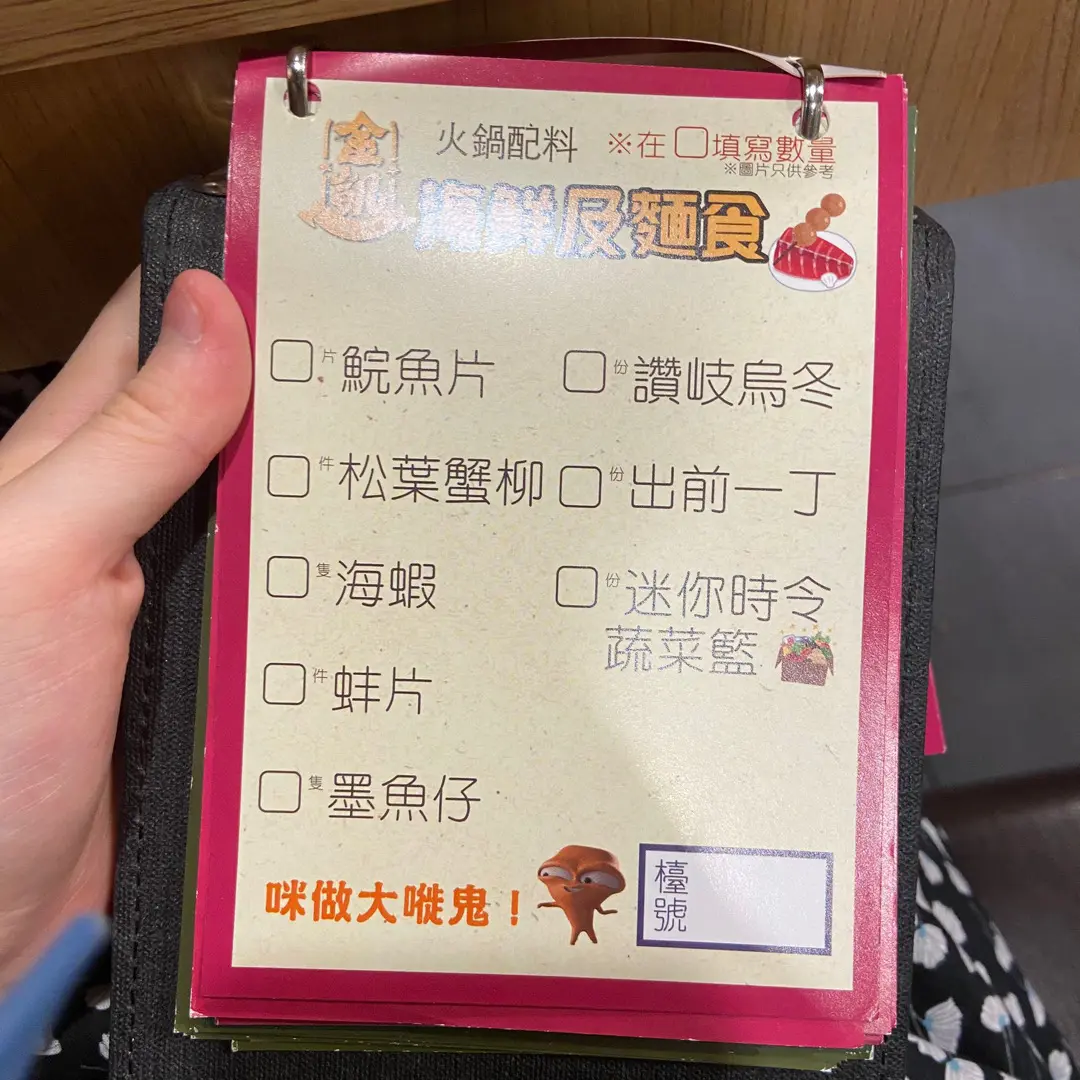 火鍋配料
※在□填寫數量
※圖片只供參考
海鮮及麵食
□片鯇魚片
□件松葉蟹柳
□隻海蝦
□件蚌片
□隻墨魚仔
□份讚岐烏冬
□份出前一丁
□份迷你時令
蔬菜籃
咪做大嘥鬼！
檯
號